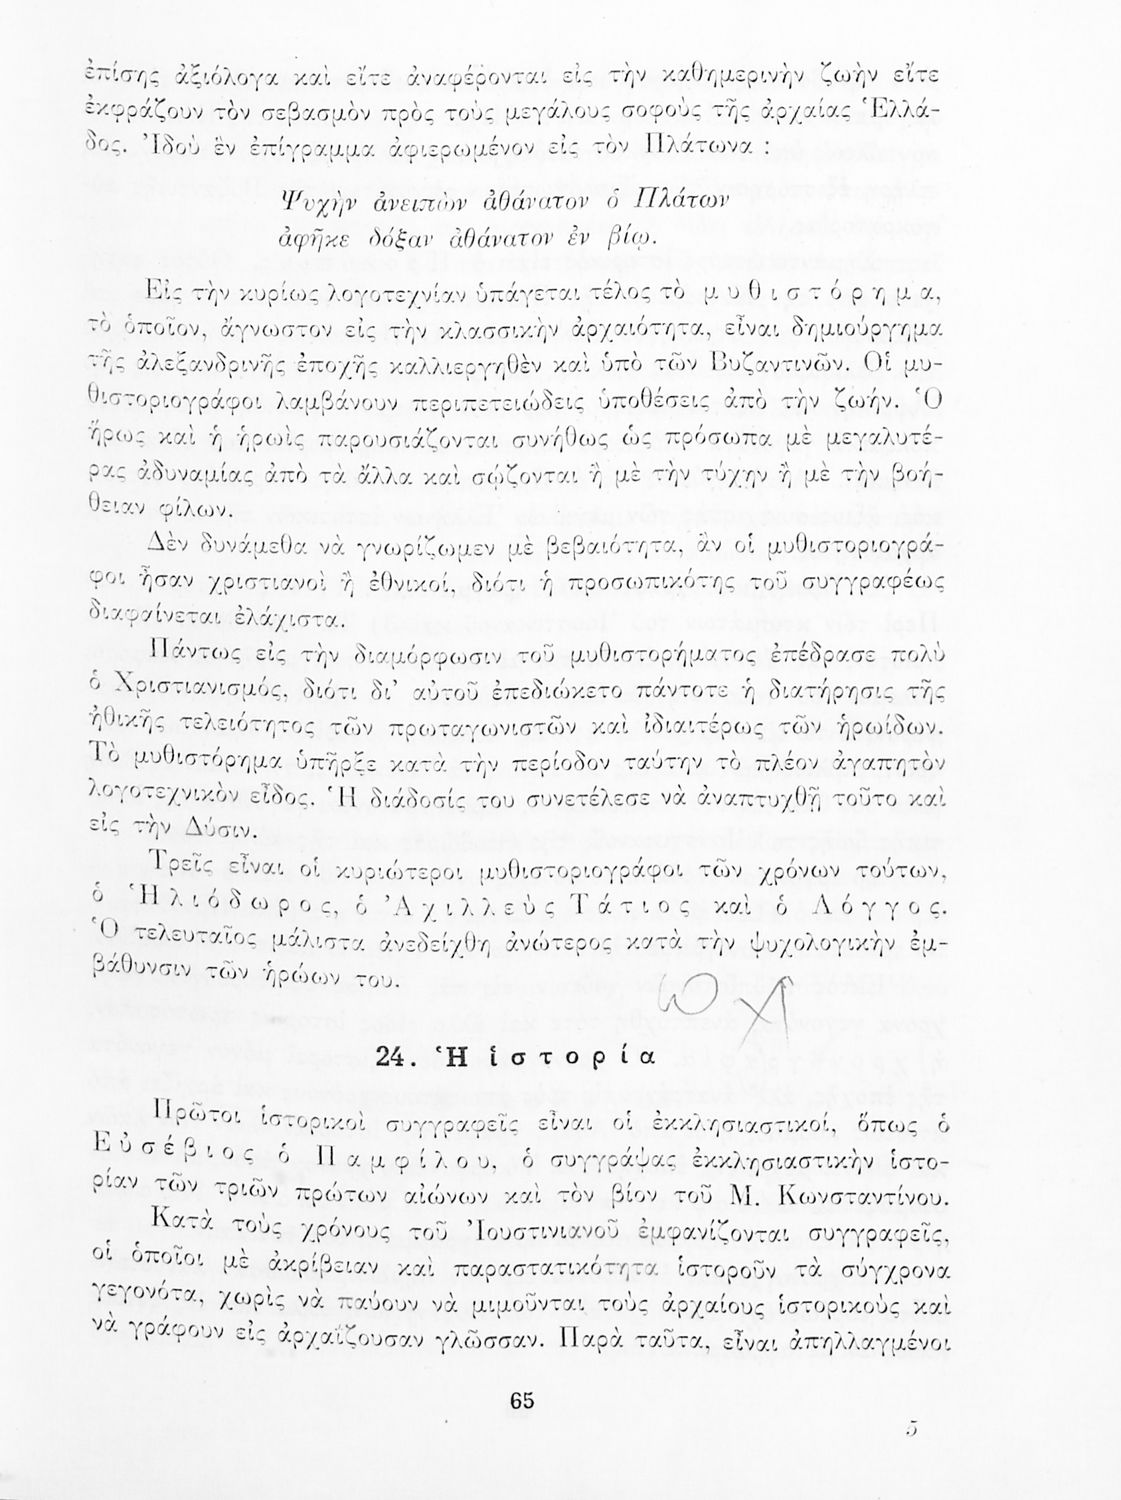 ἐπίσης ἀξιόλογα καὶ εἴτε ἀναφέρονται εἰς τὴν καθημερινὴν ζωὴν εἴτε
ἐκφράζουν τὸν σεβασμὸν πρὸς τοὺς μεγάλους σοφοὺς τῆς ἀρχαίας Ἑλλά-
δος. Ἰδοὺ ἓν ἐπίγραμμα ἀφιερωμένον εἰς τὸν Πλάτωνα :
Ψυχὴν ἀνειπὼν ἀθάνατον ὁ Πλάτων
ἀφῆκε δόξαν ἀθάνατον ἐν βίῳ.
Εἰς τὴν κυρίως λογοτεχνίαν ὑπάγεται τέλος τὸ μ υ θ ι σ τ ό ρ η μ α,
τὸ ὁποῖον, ἄγνωστον εἰς τὴν κλασσικὴν ἀρχαιότητα, εἶναι δημιούργημα
τῆς ἀλεξανδρινῆς ἐποχῆς καλλιεργηθὲν καὶ ὑπὸ τῶν Βυζαντινῶν. Οἱ μυ-
θιστοριογράφοι λαμβάνουν περιπετειώδεις ὑποθέσεις ἀπὸ τὴν ζωήν. Ὁ
ἥρως καὶ ἡ ἡρωὶς παρουσιάζονται συνήθως ὡς πρόσωπα μὲ μεγαλυτέ-
ρας ἀδυναμίας ἀπὸ τὰ ἄλλα καὶ σῴζονται ἢ μὲ τὴν τύχην ἢ μὲ τὴν βοή-
θειαν φίλων.
Δὲν δυνάμεθα νὰ γνωρίζωμεν μὲ βεβαιότητα, ἂν οἱ μυθιστοριογρά-
φοι ἦσαν χριστιανοὶ ἢ ἐθνικοί, διότι ἡ προσωπικότης τοῦ συγγραφέως
διαφαίνεται ἐλάχιστα.
Πάντως εἰς τὴν διαμόρφωσιν τοῦ μυθιστορήματος ἐπέδρασε πολὺ
ὁ Χριστιανισμός, διότι δι' αὐτοῦ ἐπεδιώκετο πάντοτε ἡ διατήρησις τῆς
ἠθικῆς τελειότητος τῶν πρωταγωνιστῶν καὶ ἰδιαιτέρως τῶν ἡρωίδων.
Τὸ μυθιστόρημα ὑπῆρξε κατὰ τὴν περίοδον ταύτην τὸ πλέον ἀγαπητὸν
λογοτεχνικὸν εἶδος. Ἡ διάδοσίς του συνετέλεσε νὰ ἀναπτυχθῇ τοῦτο καὶ
εἰς τὴν Δύσιν.
Τρεῖς εἶναι οἱ κυριώτεροι μυθιστοριογράφοι τῶν χρόνων τούτων,
ὁ Ἡ λ ι ό δ ω ρ ο ς, ὁ Ἀ χ ι λ λ ε ὺ ς Τ ά τ ι ο ς καὶ ὁ Λ ό γ γ ο ς.
Ὁ τελευταῖος μάλιστα ἀνεδείχθη ἀνώτερος κατὰ τὴν ψυχολογικὴν ἐμ-
βάθυνσιν τῶν ἡρώων του.
24. Ἡ ἱ σ τ ο ρ ί α
Πρῶτοι ἱστορικοὶ συγγραφεῖς εἶναι οἱ ἐκκλησιαστικοί, ὅπως ὁ
Ε ὐ σ έ β ι ο ς ὁ Π α μ φ ί λ ο υ, ὁ συγγράψας ἐκκλησιαστικὴν ἱστο-
ρίαν τῶν τριῶν πρώτων αἰώνων καὶ τὸν βίον τοῦ Μ. Κωνσταντίνου.
Κατὰ τοὺς χρόνους τοῦ Ἰουστινιανοῦ ἐμφανίζονται συγγραφεῖς,
οἱ ὁποῖοι μὲ ἀκρίβειαν καὶ παραστατικότητα ἱστοροῦν τὰ σύγχρονα
γεγονότα, χωρὶς νὰ παύουν νὰ μιμοῦνται τοὺς ἀρχαίους ἱστορικοὺς καὶ
νὰ γράφουν εἰς ἀρχαΐζουσαν γλῶσσαν. Παρὰ ταῦτα, εἶναι ἀπηλλαγμένοι
65
5